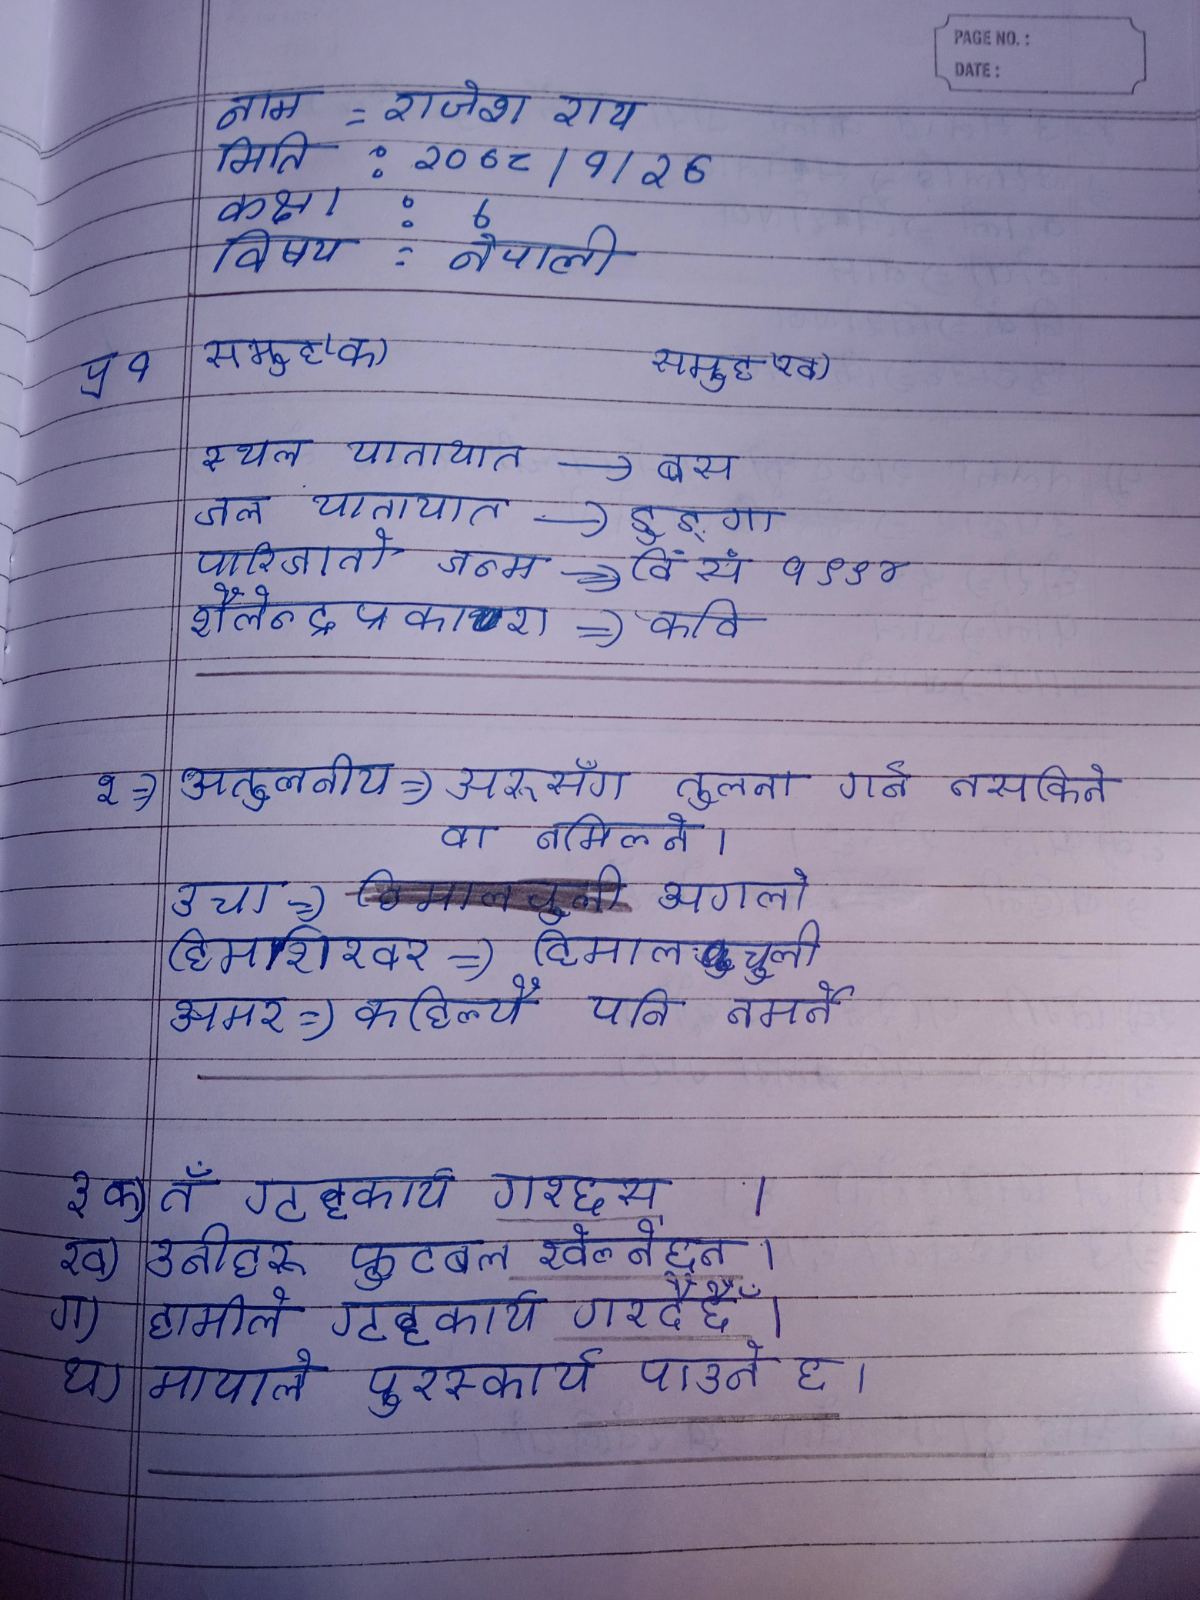 PAGE NO. :
DATE :
नाम = राजेश राय
मिति : २०७८/१/२६
कक्षा : ६
विषय : नेपाली
प्र १ समुह 'क) समुह 'ख)
स्थल यातायात → बस
जल यातायात → डुङ्गा
पारिजातो जन्म ⇒ विं सं १९९४
शैलेन्द्रप्रकाश ⇒ कवि
२⇒ अतुलनीय ⇒ अरूसँग तुलना गर्न नसकिने
वा नमिल्ने।
उचा ⇒ हिमालचुली अगलो
हिमाशिखर ⇒ हिमालचुली
अमर ⇒ कहिल्यै पनि नमर्ने
३ क) तँ गृहकार्य गरछस ।
ख) उनीहरू फुटबल खेल्नेछन ।
ग) हामीले गृहकार्य गरदैछौँ ।
घ) मायाले पुरस्कार्य पाउने छ ।